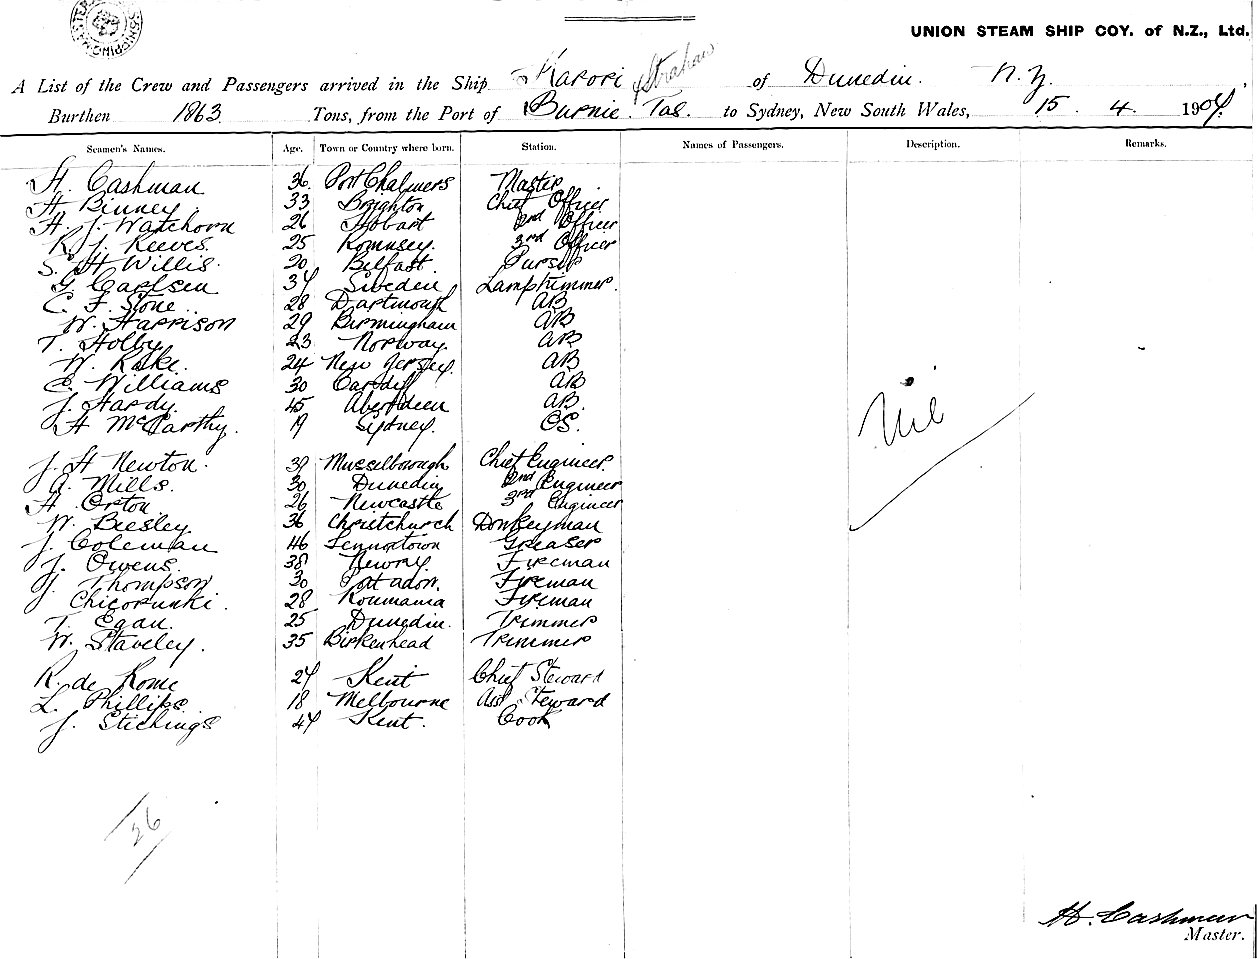 UNION STEAM SHIP COY. of N.Z., Ltd.
A List of the Crew and Passengers arrived in the Ship Karori & Strahan of Dunedin. N.Z.
Burthen 1863 Tons, from the Port of Burnie. Tas. to Sydney, New South Wales, 15. 4. 1904.
Seamen's Names. Age. Town or Country where born. Station. Names of Passengers. Description. Remarks.
H. Cashman 36. Port Chalmers Master
H. Binney. 33 Brighton Chief Officer
H. J. Watchorn 26 Hobart 2nd Officer
R. J. Reeves. 25 Romnsey. 3rd Officer
S. H Willis. 20 Belfast. Purser
G Carlsen 34 Sweden Lamptrimmer.
C. F. Stone 28 Dartmouth AB
W. Harrison 29 Birmingham AB
T. Holby 23 Norway. AB
W. Rake. 24 New Jersey. AB
E. Williams 30 Cardiff AB
J. Hardy. 45 Aberdeen AB.
H McCarthy. 19 Sydney. OS.
Nil
J. H Newton. 39 Musselborough Chief Engineer.
A. Mills. 30 Dunedin 2nd Engineer
H. Orton 26 Newcastle 3rd Engineer
W. Beesley. 36 Christchurch Donkeyman
J. Coleman 46 Lennoxtown Greaser
J. Owens. 38 Newry. Fireman
J. Thompson 30 Fireman
Chicorunki. 28 Roumania Fireman
T. Egan. 25 Dunedin. Trimmer
W. Staveley. 35 Birkenhead Trimmer
R. de Rome 24 Kent Chief Steward
L. Phillips. 18 Melbourne Asst. Steward
J. Stichings 44 Kent. Cook
26
H. Cashman
Master.